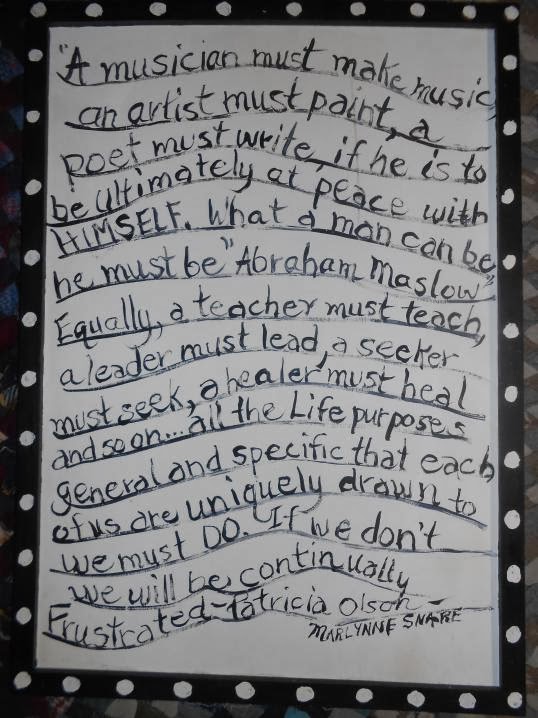 "A musician must make music,
an artist must paint, a
poet must write, if he is to
be ultimately at peace with
HIMSELF. What a man can be,
he must be" Abraham Maslow"
Equally, a teacher must teach,
a leader must lead, a seeker
must seek, a healer must heal
and so on... all the Life purposes
general and specific that each
of us are uniquely drawn to
we must DO. If we don't
we will be continually
Frustrated-Patricia Olson-
MARLYNNE SNARE